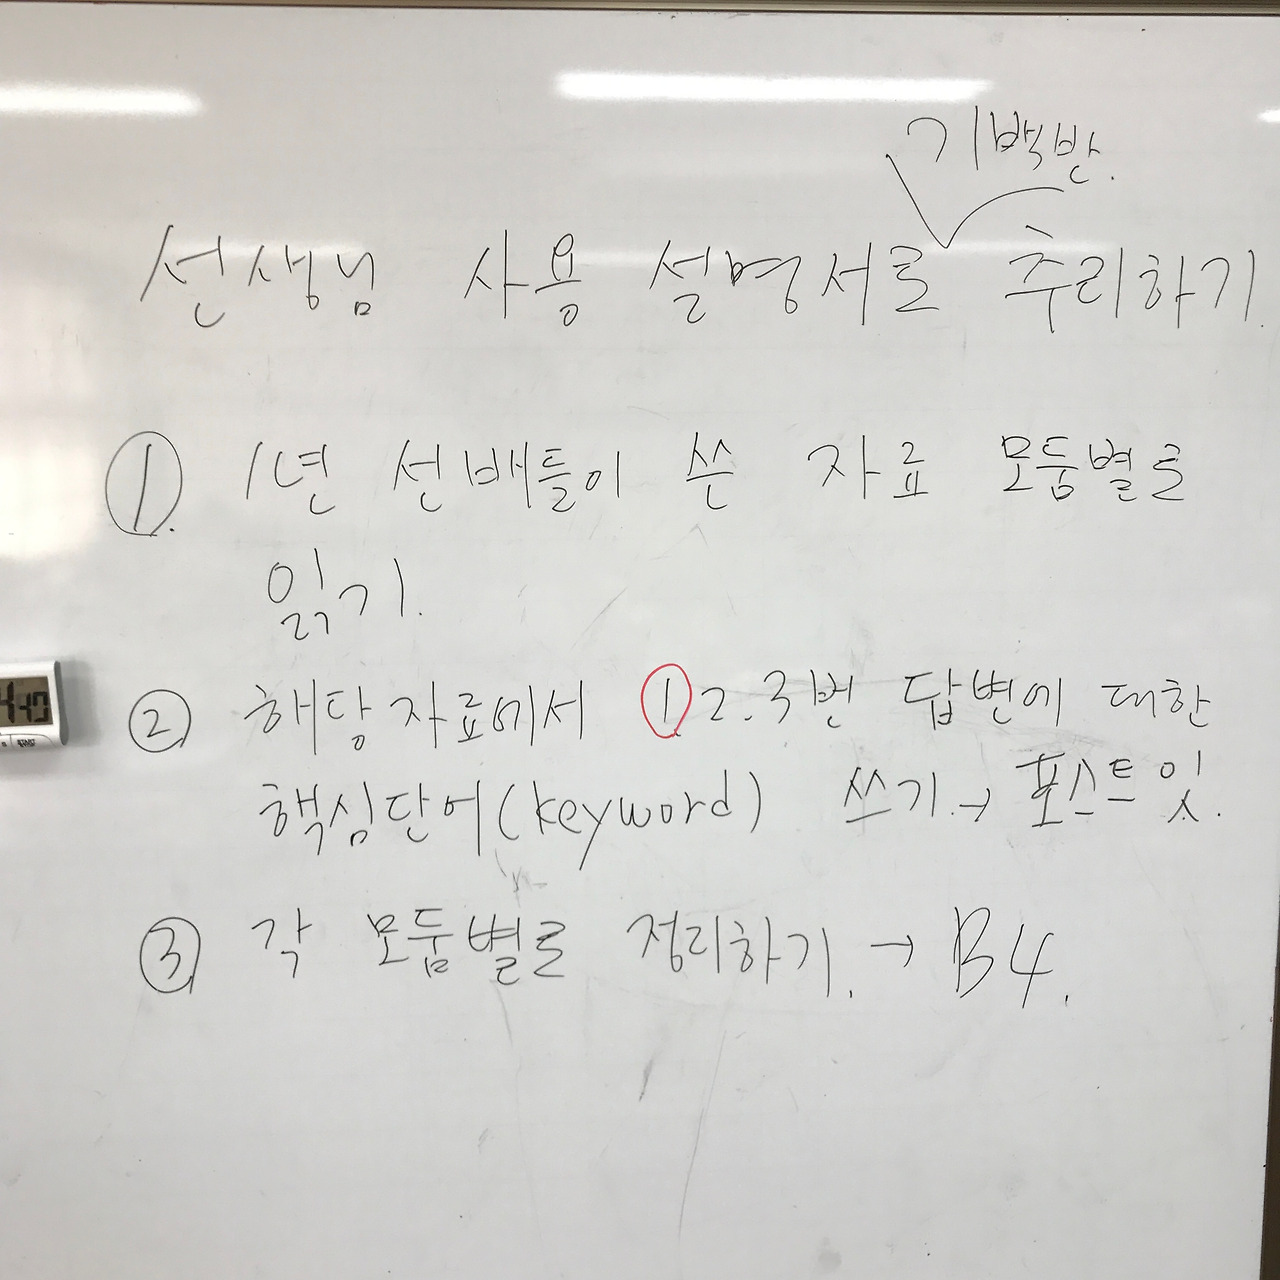 기백반.
선생님 사용 설명서로 추리하기.
①. 1년 선배들이 쓴 자료 모둠별로
읽기.
② 해당자료에서 ① 2. 3번 답변에 대한
핵심단어(keyword) 쓰기. → 포스트잇.
③ 각 모둠별로 정리하기. → B4.